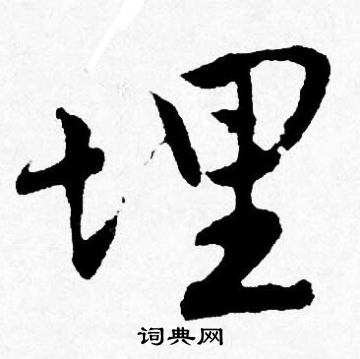 埋
词典网